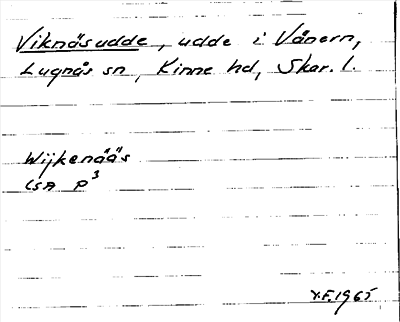 Viknäsudde, udde i Vänern,
Lugnås sn, Kinne hd, Skar. l.
Wijkenääs
LSA P³
Y.F. 1965